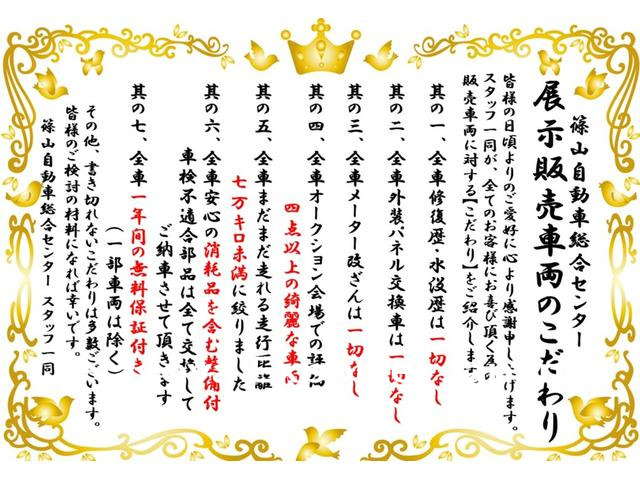 篠山自動車総合センター
展示販売車両のこだわり
皆様の日頃よりのご愛好に心より感謝申し上げます。
スタッフ一同が、全てのお客様にお喜び頂く為の
販売車両に対する【こだわり】をご紹介します
其の一、全車修復歴・水没歴は一切なし
其の二、全車外装パネル交換車は一切なし
其の三、全車メーター改ざんは一切なし
其の四、全車オークション会場での評価
四点以上の綺麗な車両
其の五、全車まだまだ走れる走行距離
七万キロ未満に絞りました
其の六、全車安心の消耗品を含む整備付
車検不適合部品は全て交換して
ご納車させて頂きます
其の七、全車一年間の無料保証付き
（一部車両は除く）
その他、書き切れないこだわりは多数ございます。
皆様のご検討の材料になれば幸いです。
篠山自動車総合センター スタッフ一同